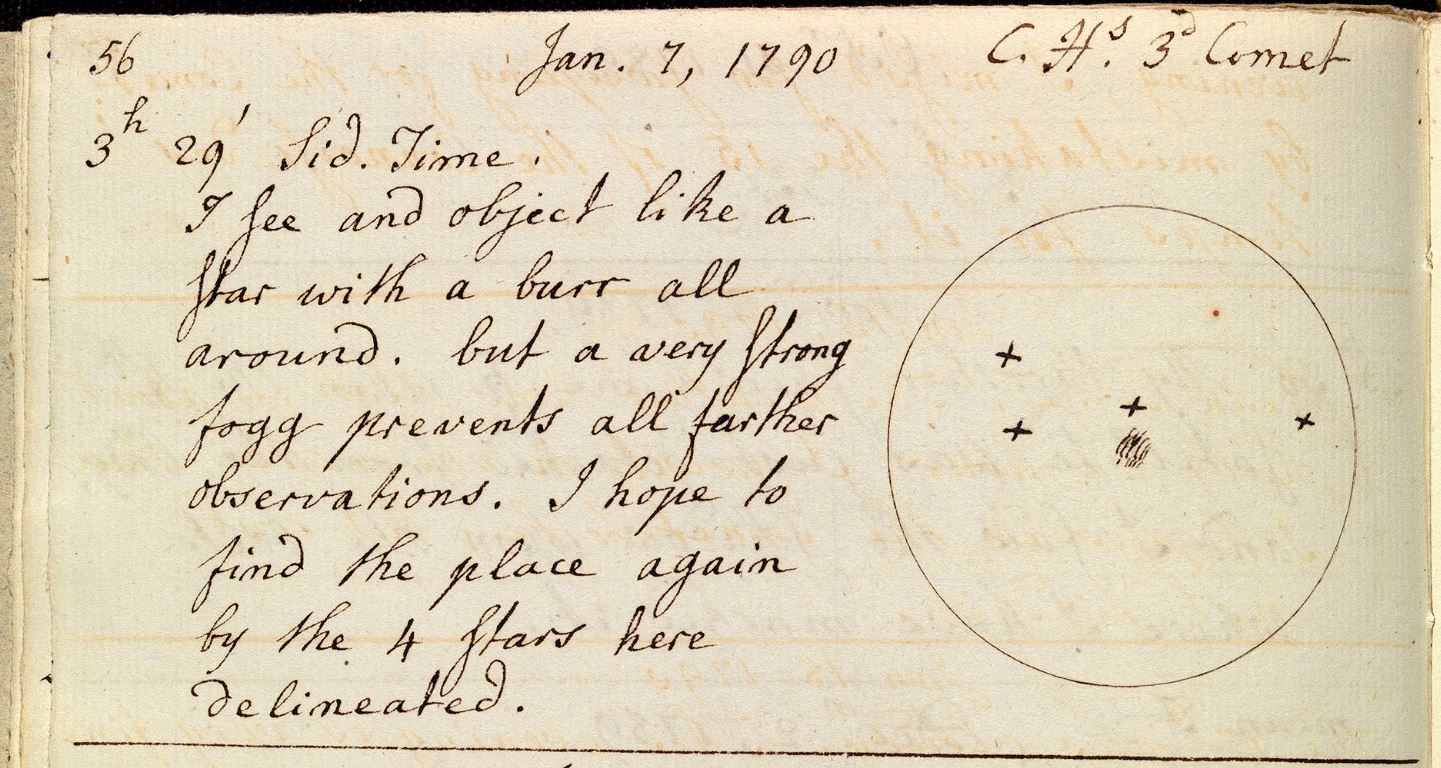 56 Jan. 7, 1790 C. Hs. 3d Comet
3h 29' Sid. Time.
I see and object like a
star with a burr all
around. but a very strong
fogg prevents all farther
observations. I hope to
find the place again
by the 4 stars here
delineated.